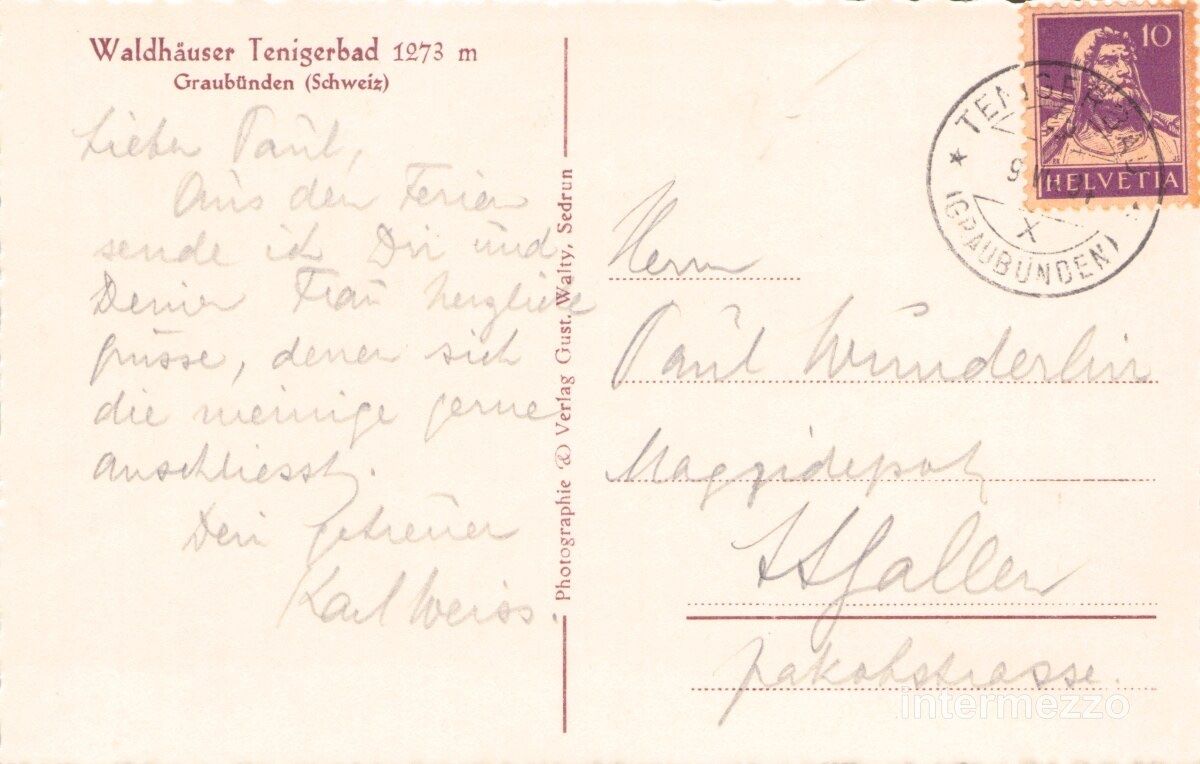 Waldhäuser Tenigerbad 1273 m
Graubünden (Schweiz)
Lieber Paul,
Aus den Ferien
sende ich Dir und
Deiner Frau herzliche
Grüsse, denen sich
die meinige gerne
anschliesst.
Dein getreuer
Karl Weiss.
Photographie & Verlag Gust. Walty, Sedrun
10
HELVETIA
(GRAUBÜNDEN)
X
Herrn
Paul Wunderlin
Maggidepot
St Gallen
Jakobstrasse.
intermezzo